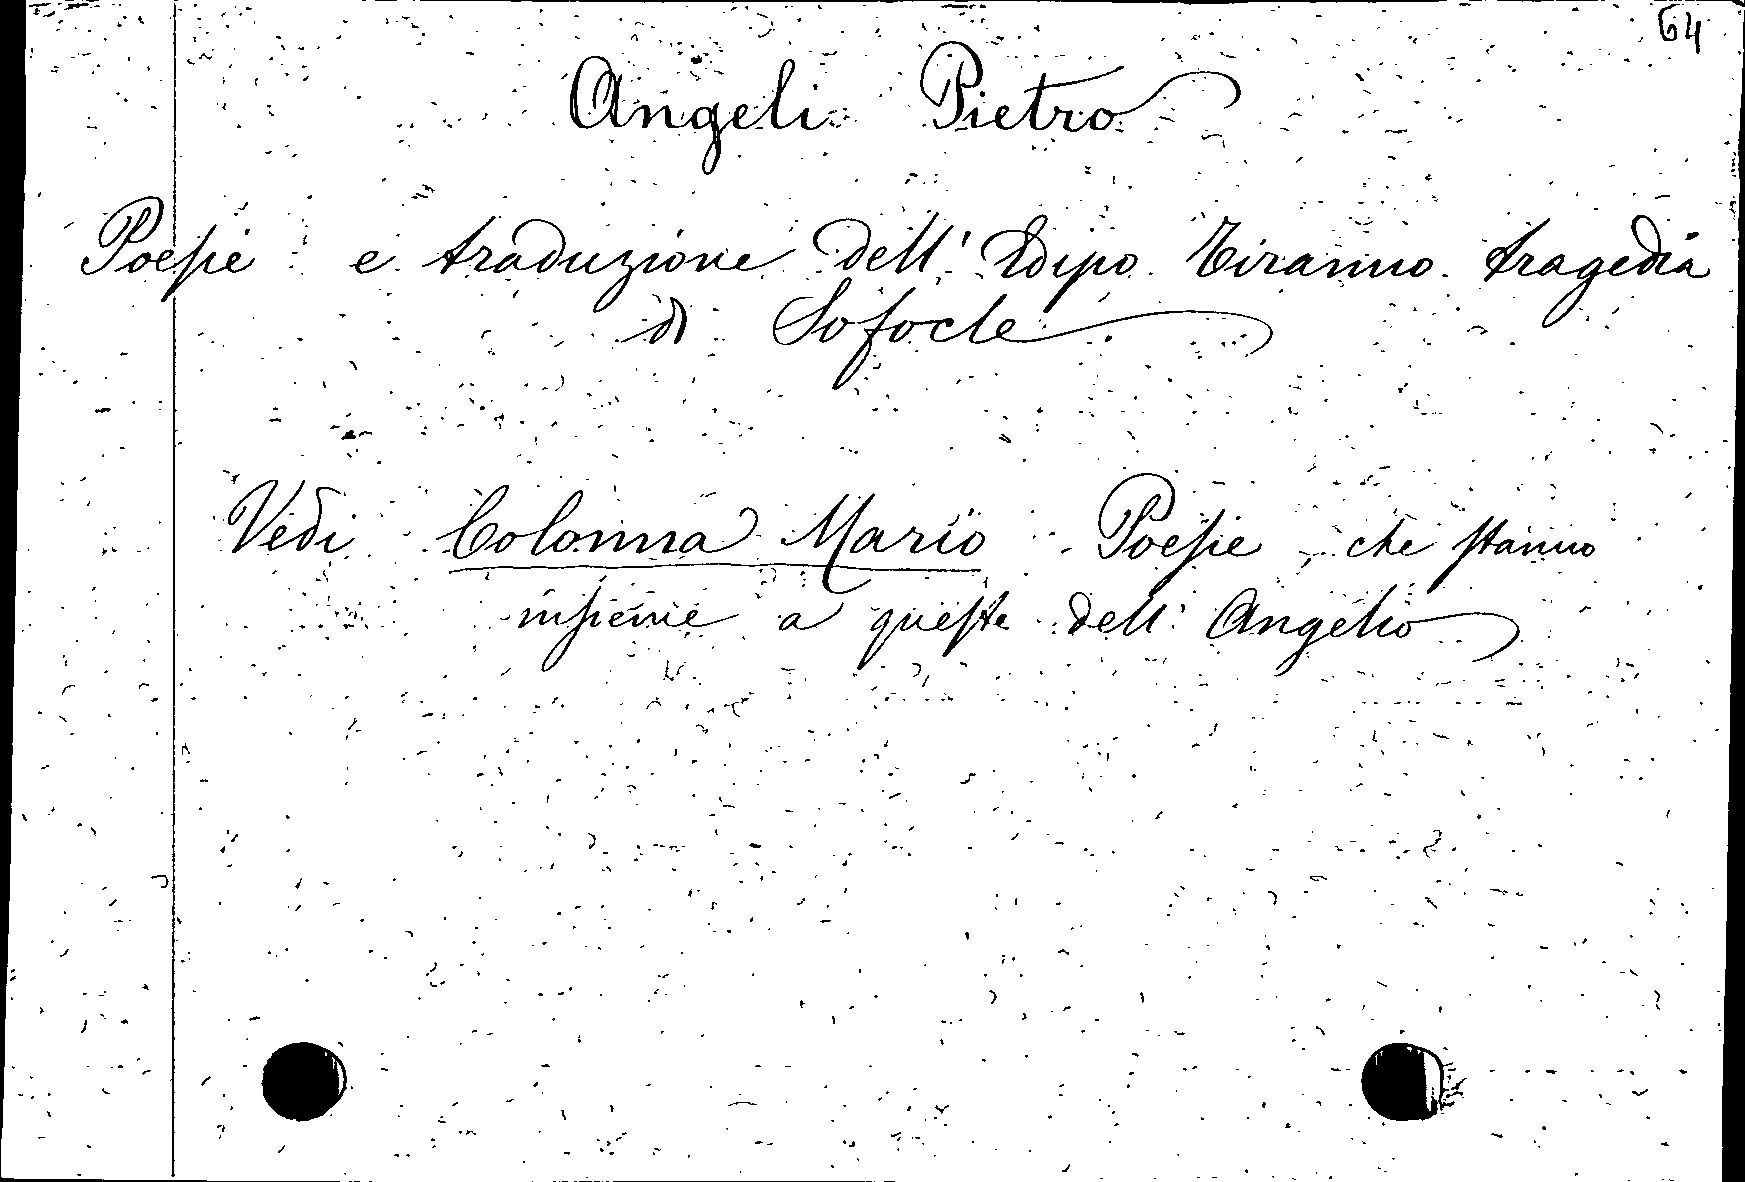 64
Angeli Pietro
Poesie e traduzione dell' Edipo Tiranno tragedia
di Sofocle
Vedi Colonna Mario Poesie che stanno
insieme a queste dell' Angelio